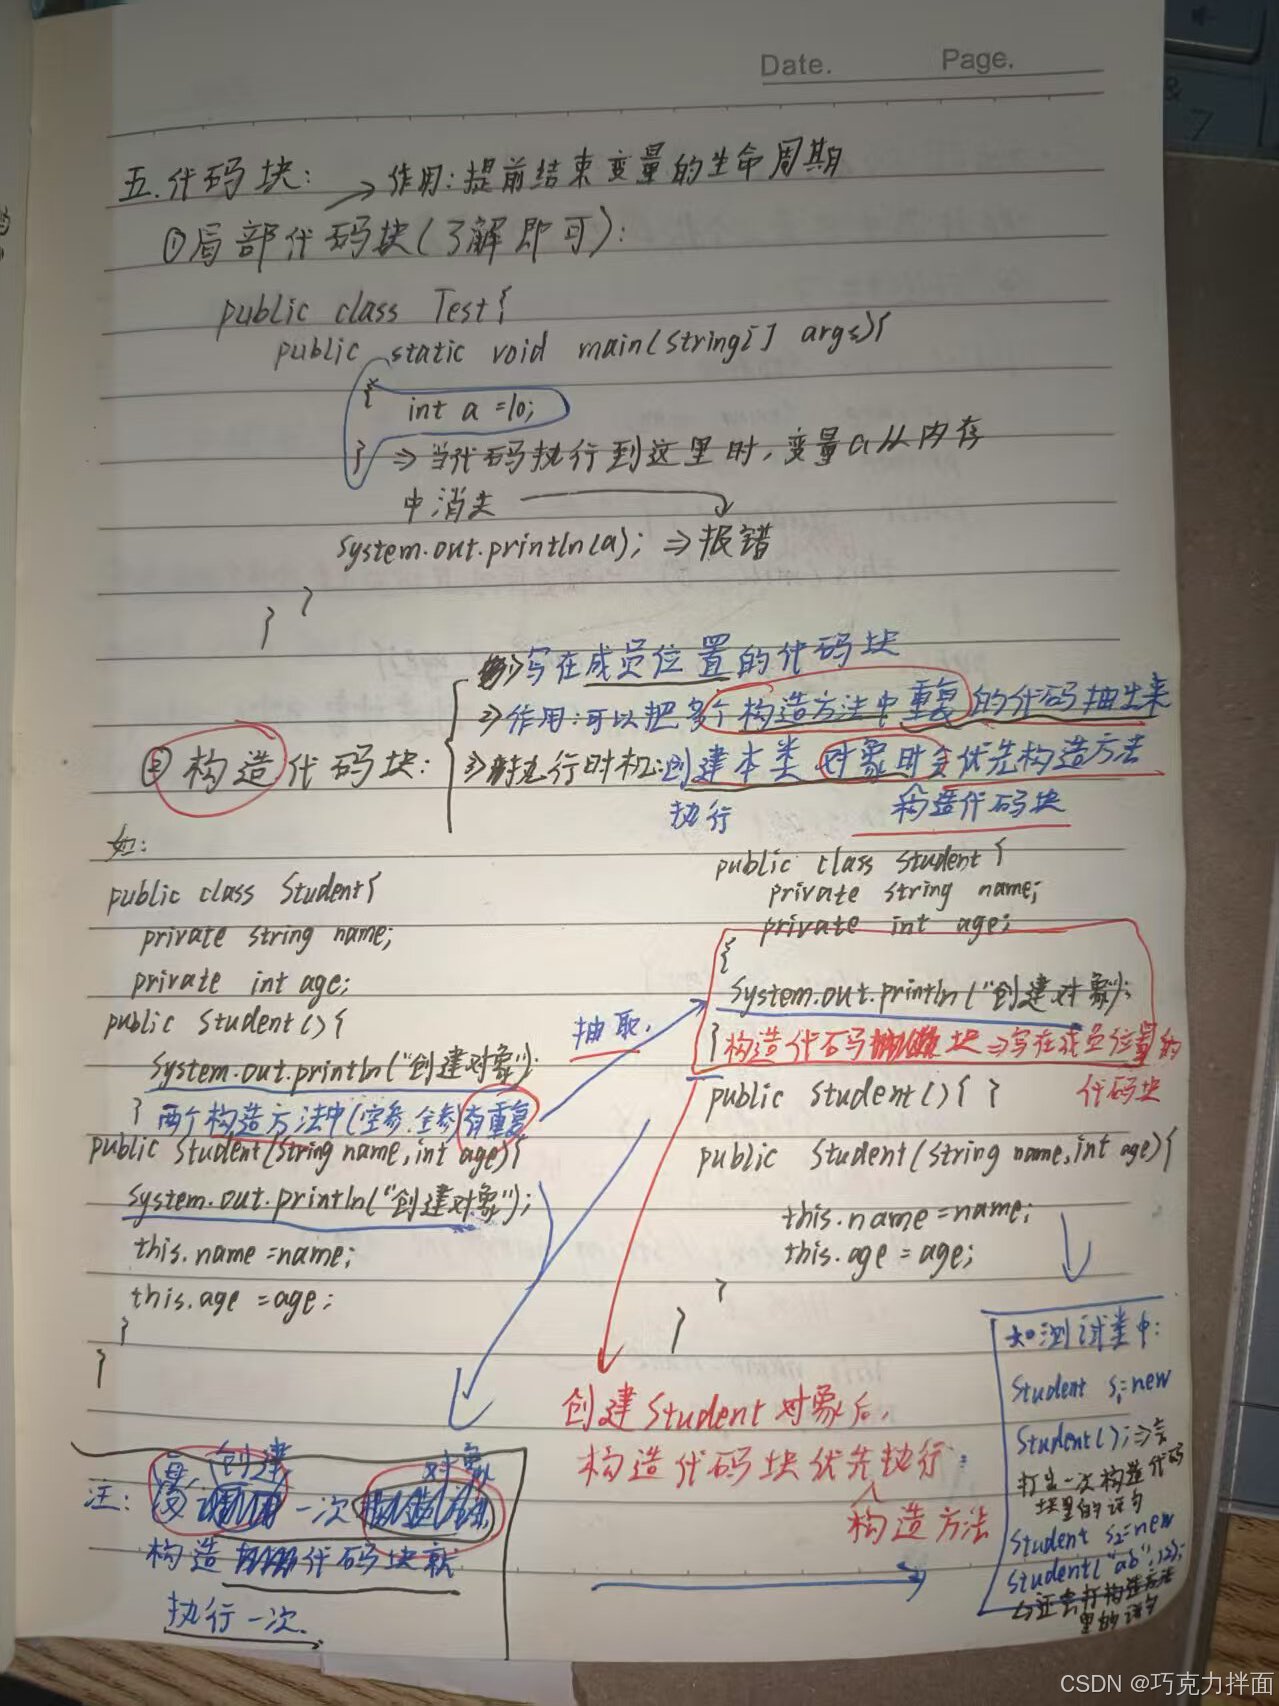 Date.
Page.
五.代码块:
→作用:提前结束变量的生命周期
①局部代码块(了解即可):
public class Test{
public static void main(String[] args){
{
int a =10;
} ⇒当代码执行到这里时,变量a从内存
中消失
System.out.println(a); ⇒报错
}
}
写在成员位置的代码块
2>作用:可以把多个构造方法中重复的代码抽出来
②构造代码块:
3>执行时机:创建本类对象时会优先构造方法
执行
构造代码块
如:
public class Student{
private string name;
private int age;
public Student(){
System.out.println("创建对象");
} 两个构造方法中(空参.全参)有重复
public Student(String name,int age){
System.out.println("创建对象");
this.name =name;
this.age =age;
}
}
抽取.
public class Student {
private string name;
private int age;
{
System.out.println("创建对象);
} 构造代码块⇒写在成员位置的
代码块
public Student(){ }
public Student(String name,int age){
this.name =name;
this.age = age;
}
}
创建Student对象后,
构造代码块优先执行:
构造方法
如测试类中:
Student s1=new
Student();⇒会
打出一次构造代码
块里的语句
Student s2=new
Student("ab",12);
里的语句
创建 对象
注: 一次
构造代码块就
执行一次.
7
CSDN @巧克力拌面